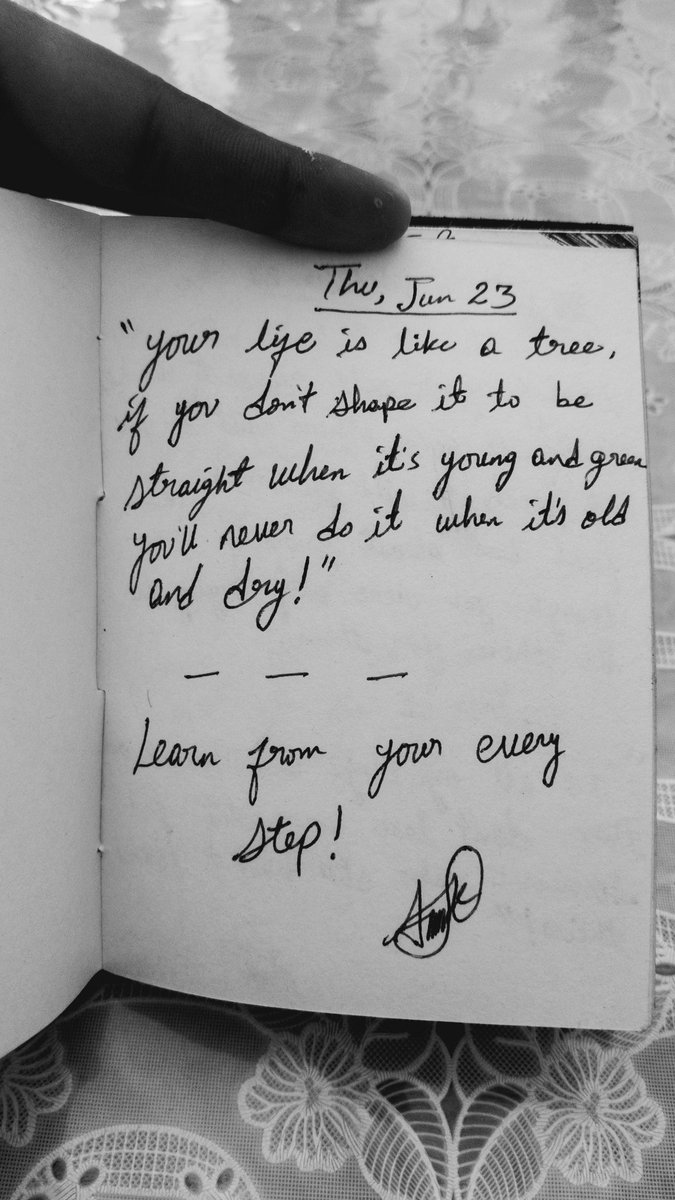 Thu, Jun 23
"your life is like a tree,
if you don't shape it to be
straight when it's young and green
you'll never do it when it's old
and dry!"
— — —
Learn from your every
step!